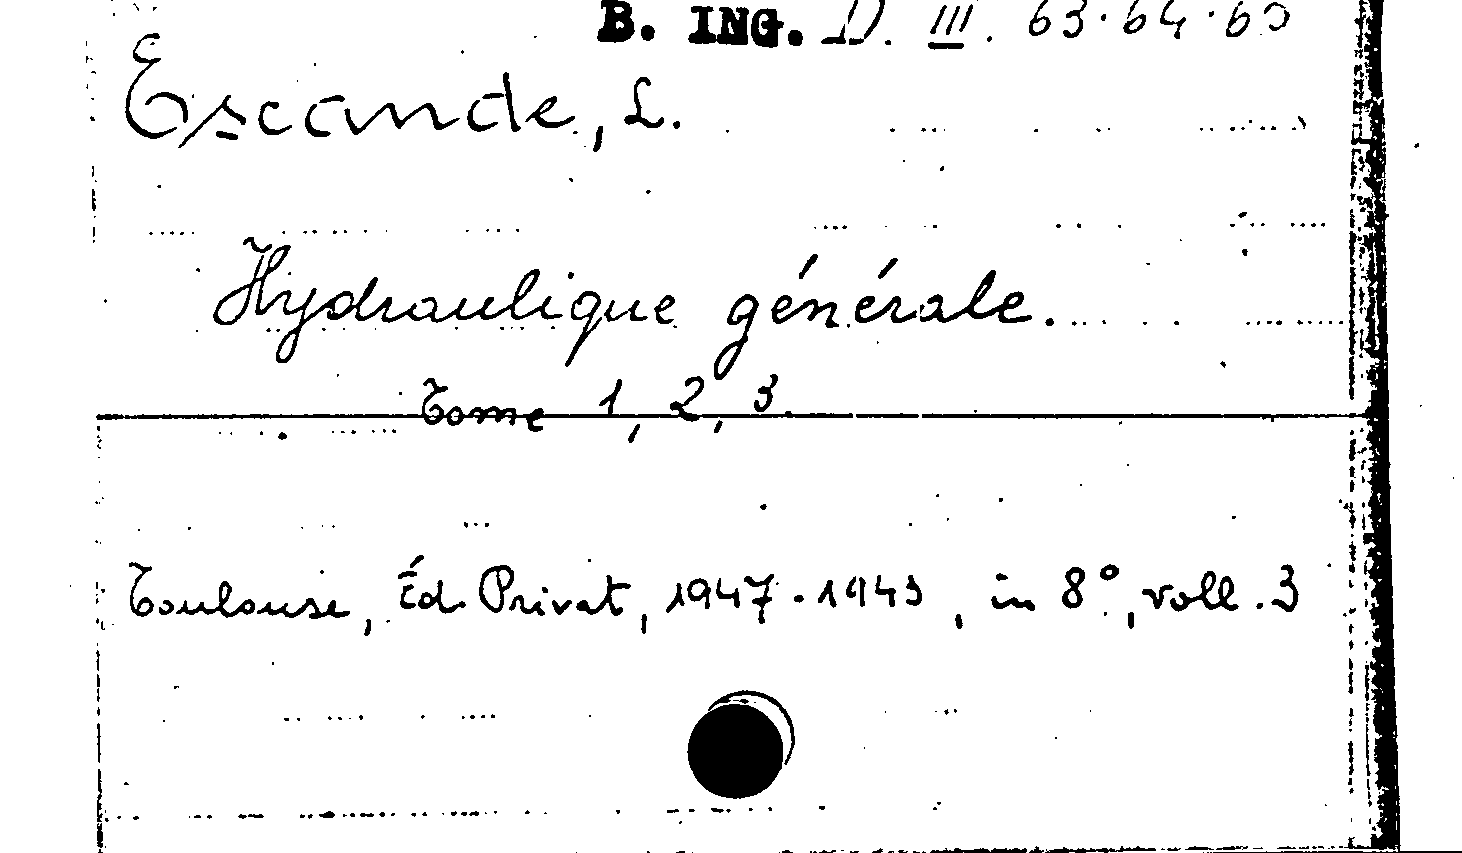 B. ING. D. III. 63.64.65
Escande, L.
Hydraulique générale.
Tome 1, 2, 3.
Toulouse, Éd. Privat, 1947.1943, in 8°, voll.3